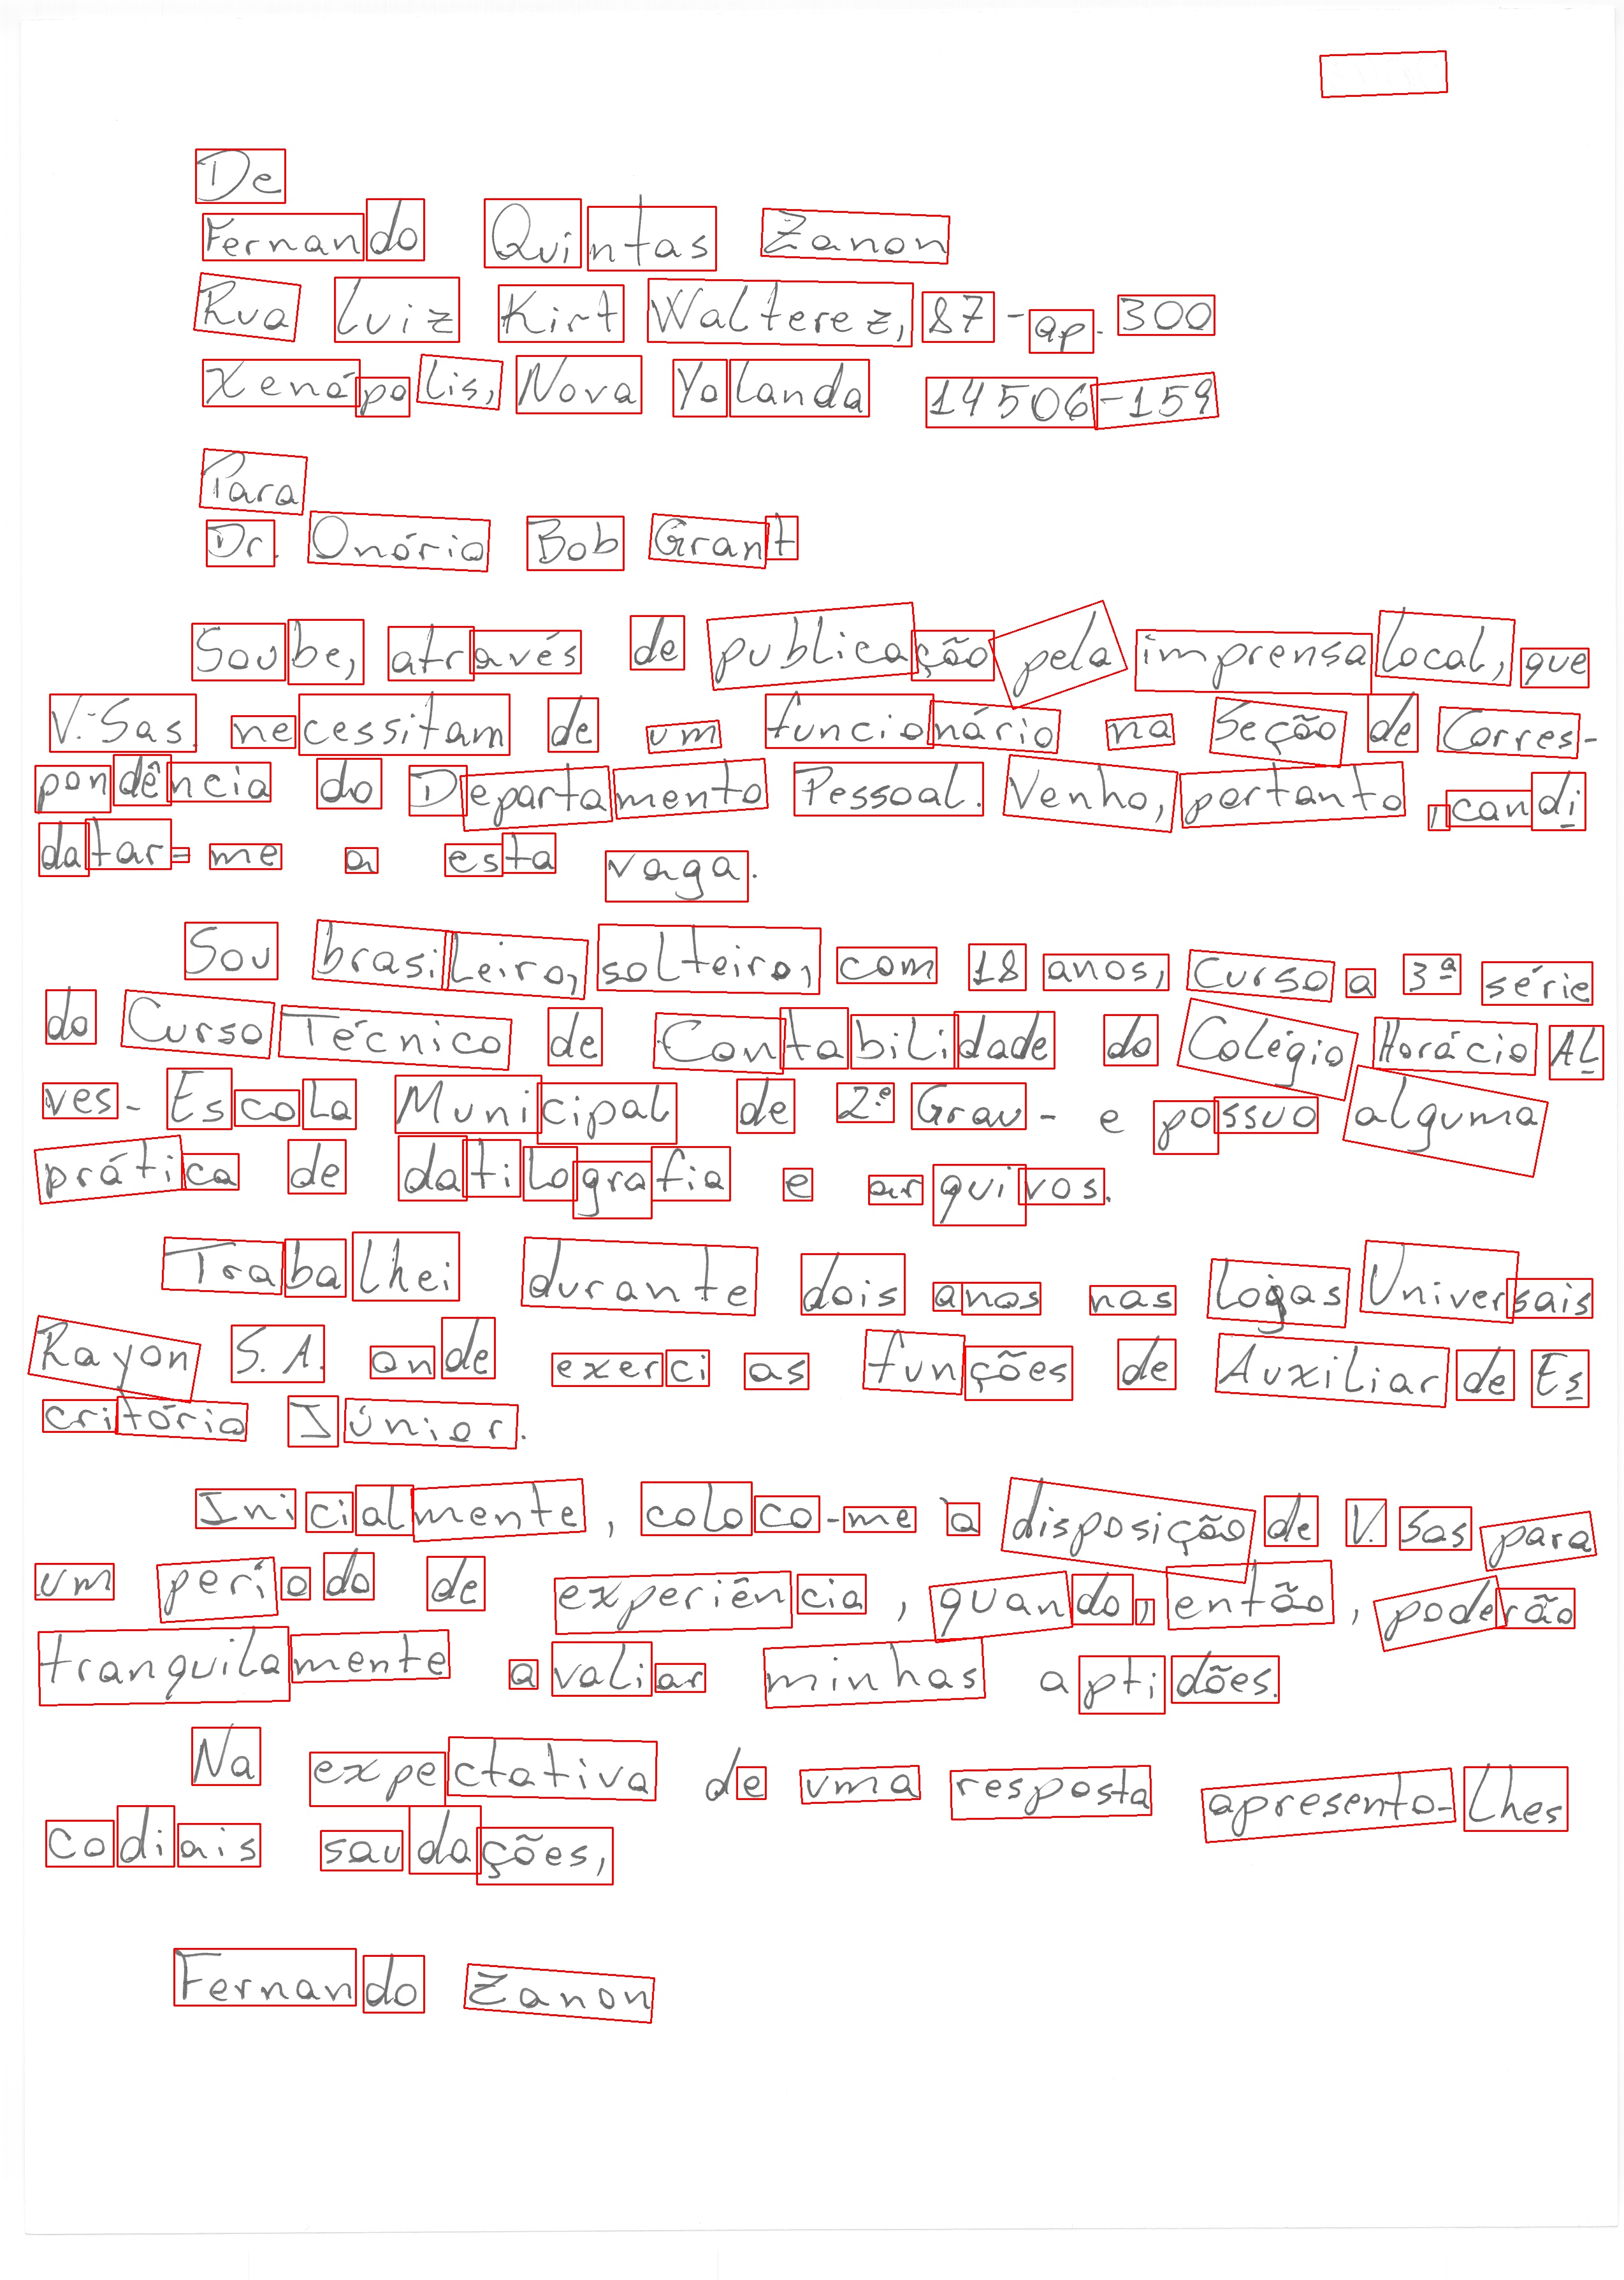 De
Fernando Quintas Zanon
Rua Luiz Kirt Walterez, 87 - ap. 300
Xenópolis, Nova Yolanda 14506-159
Para
Dr. Onório Bob Grant
Soube, através de publicação pela imprensa local, que
V. Sas. necessitam de um funcionário na Seção de Corres-
pondência do Departamento Pessoal. Venho, portanto, candi
datar-me a esta vaga.
Sou brasileiro, solteiro, com 18 anos, Curso a 3ª série
do Curso Técnico de Contabilidade do Colégio Horácio Al
ves - Escola Municipal de 2º Grau - e possuo alguma
prática de datilografia e arquivos.
Trabalhei durante dois anos nas Logas Universais
Rayon S. A. onde exerci as funções de Auxiliar de Es
critório Júnior.
Inicialmente, coloco-me à disposição de V. Sas para
um período de experiência, quando, então, poderão
tranquilamente avaliar minhas aptidões.
Na expectativa de uma resposta apresento-lhes
codiais saudações,
Fernando Zanon